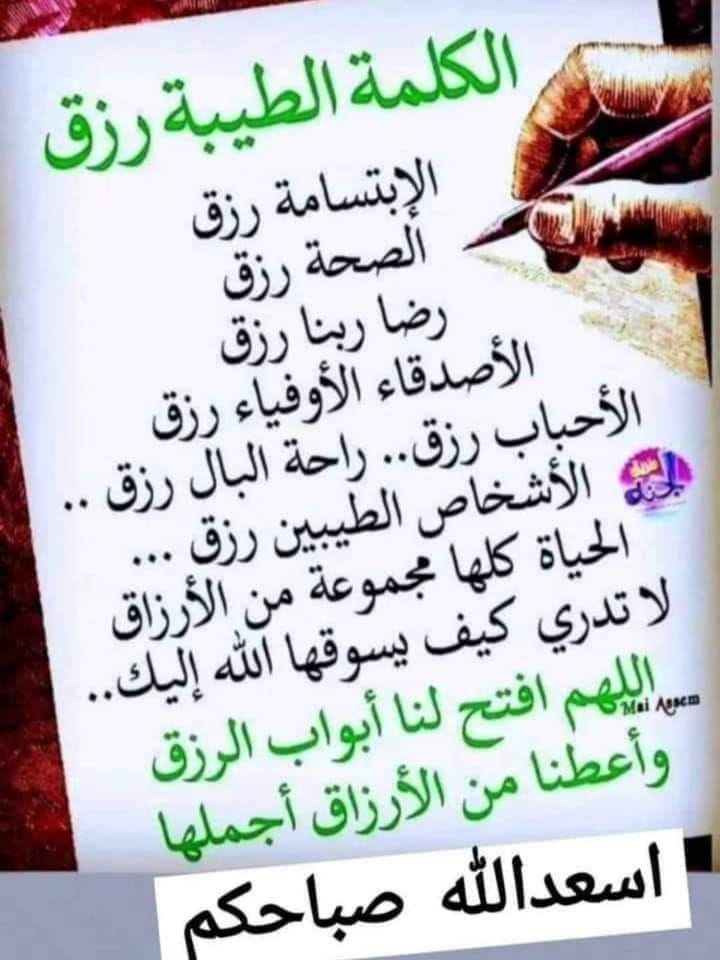 الكلمة الطيبة رزق
الإبتسامة رزق
الصحة رزق
رضا ربنا رزق
الأصدقاء الأوفياء رزق
الأحباب رزق.. راحة البال رزق ..
الأشخاص الطيبين رزق ...
الحياة كلها مجموعة من الأرزاق
لا تدري كيف يسوقها الله إليك..
اللهم افتح لنا أبواب الرزق
Mai Assem
وأعطنا من الأرزاق أجملها
اسعدالله صباحكم